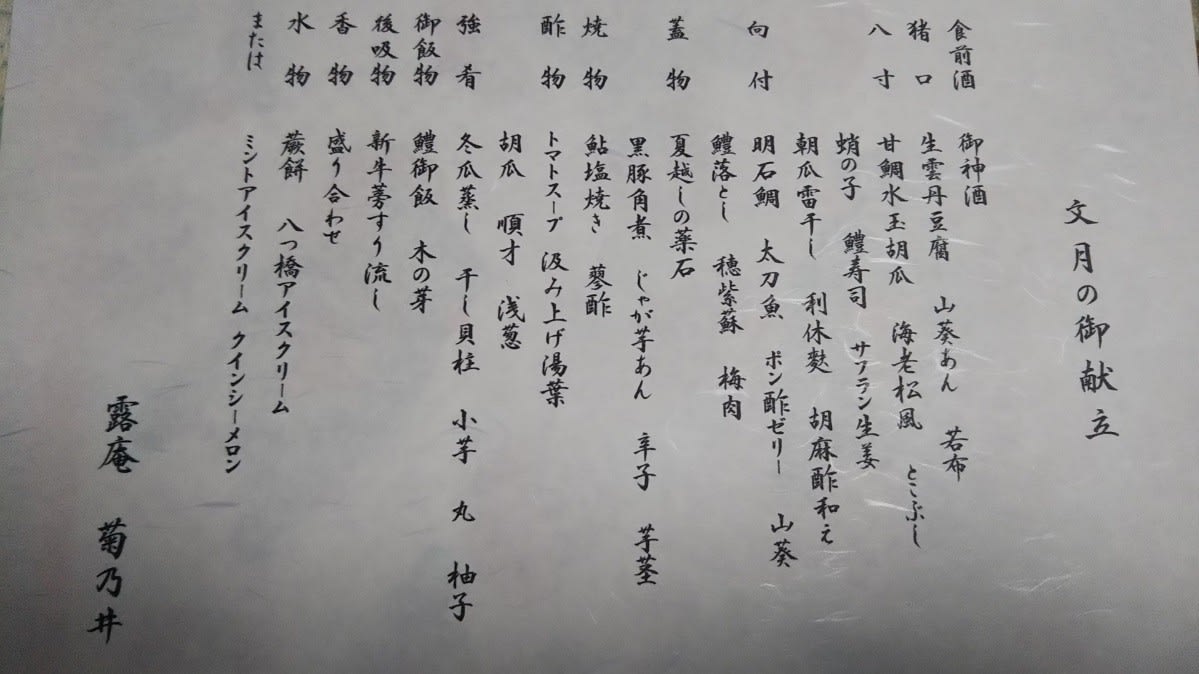 文月の御献立
食前酒 御神酒
猪口 生雲丹豆腐 山葵あん 若布
八寸 甘鯛水玉胡瓜 海老松風 とこぶし
蛸の子 鱧寿司 サフラン生姜
朝瓜雷干し 利休麩 胡麻酢和え
向付 明石鯛 太刀魚 ポン酢ゼリー 山葵
鱧落とし 穂紫蘇 梅肉
蓋物 夏越しの薬石
黒豚角煮 じゃが芋あん 辛子 芋茎
焼物 鮎塩焼き 蓼酢
酢物 トマトスープ 汲み上げ湯葉
胡瓜 順才 浅葱
強肴 冬瓜蒸し 干し貝柱 小芋 丸 柚子
御飯物 鱧御飯 木の芽
後吸物 新牛蒡すり流し
香物 盛り合わせ
水物 蕨餅 八つ橋アイスクリーム
または ミントアイスクリーム クインシーメロン
露庵 菊乃井